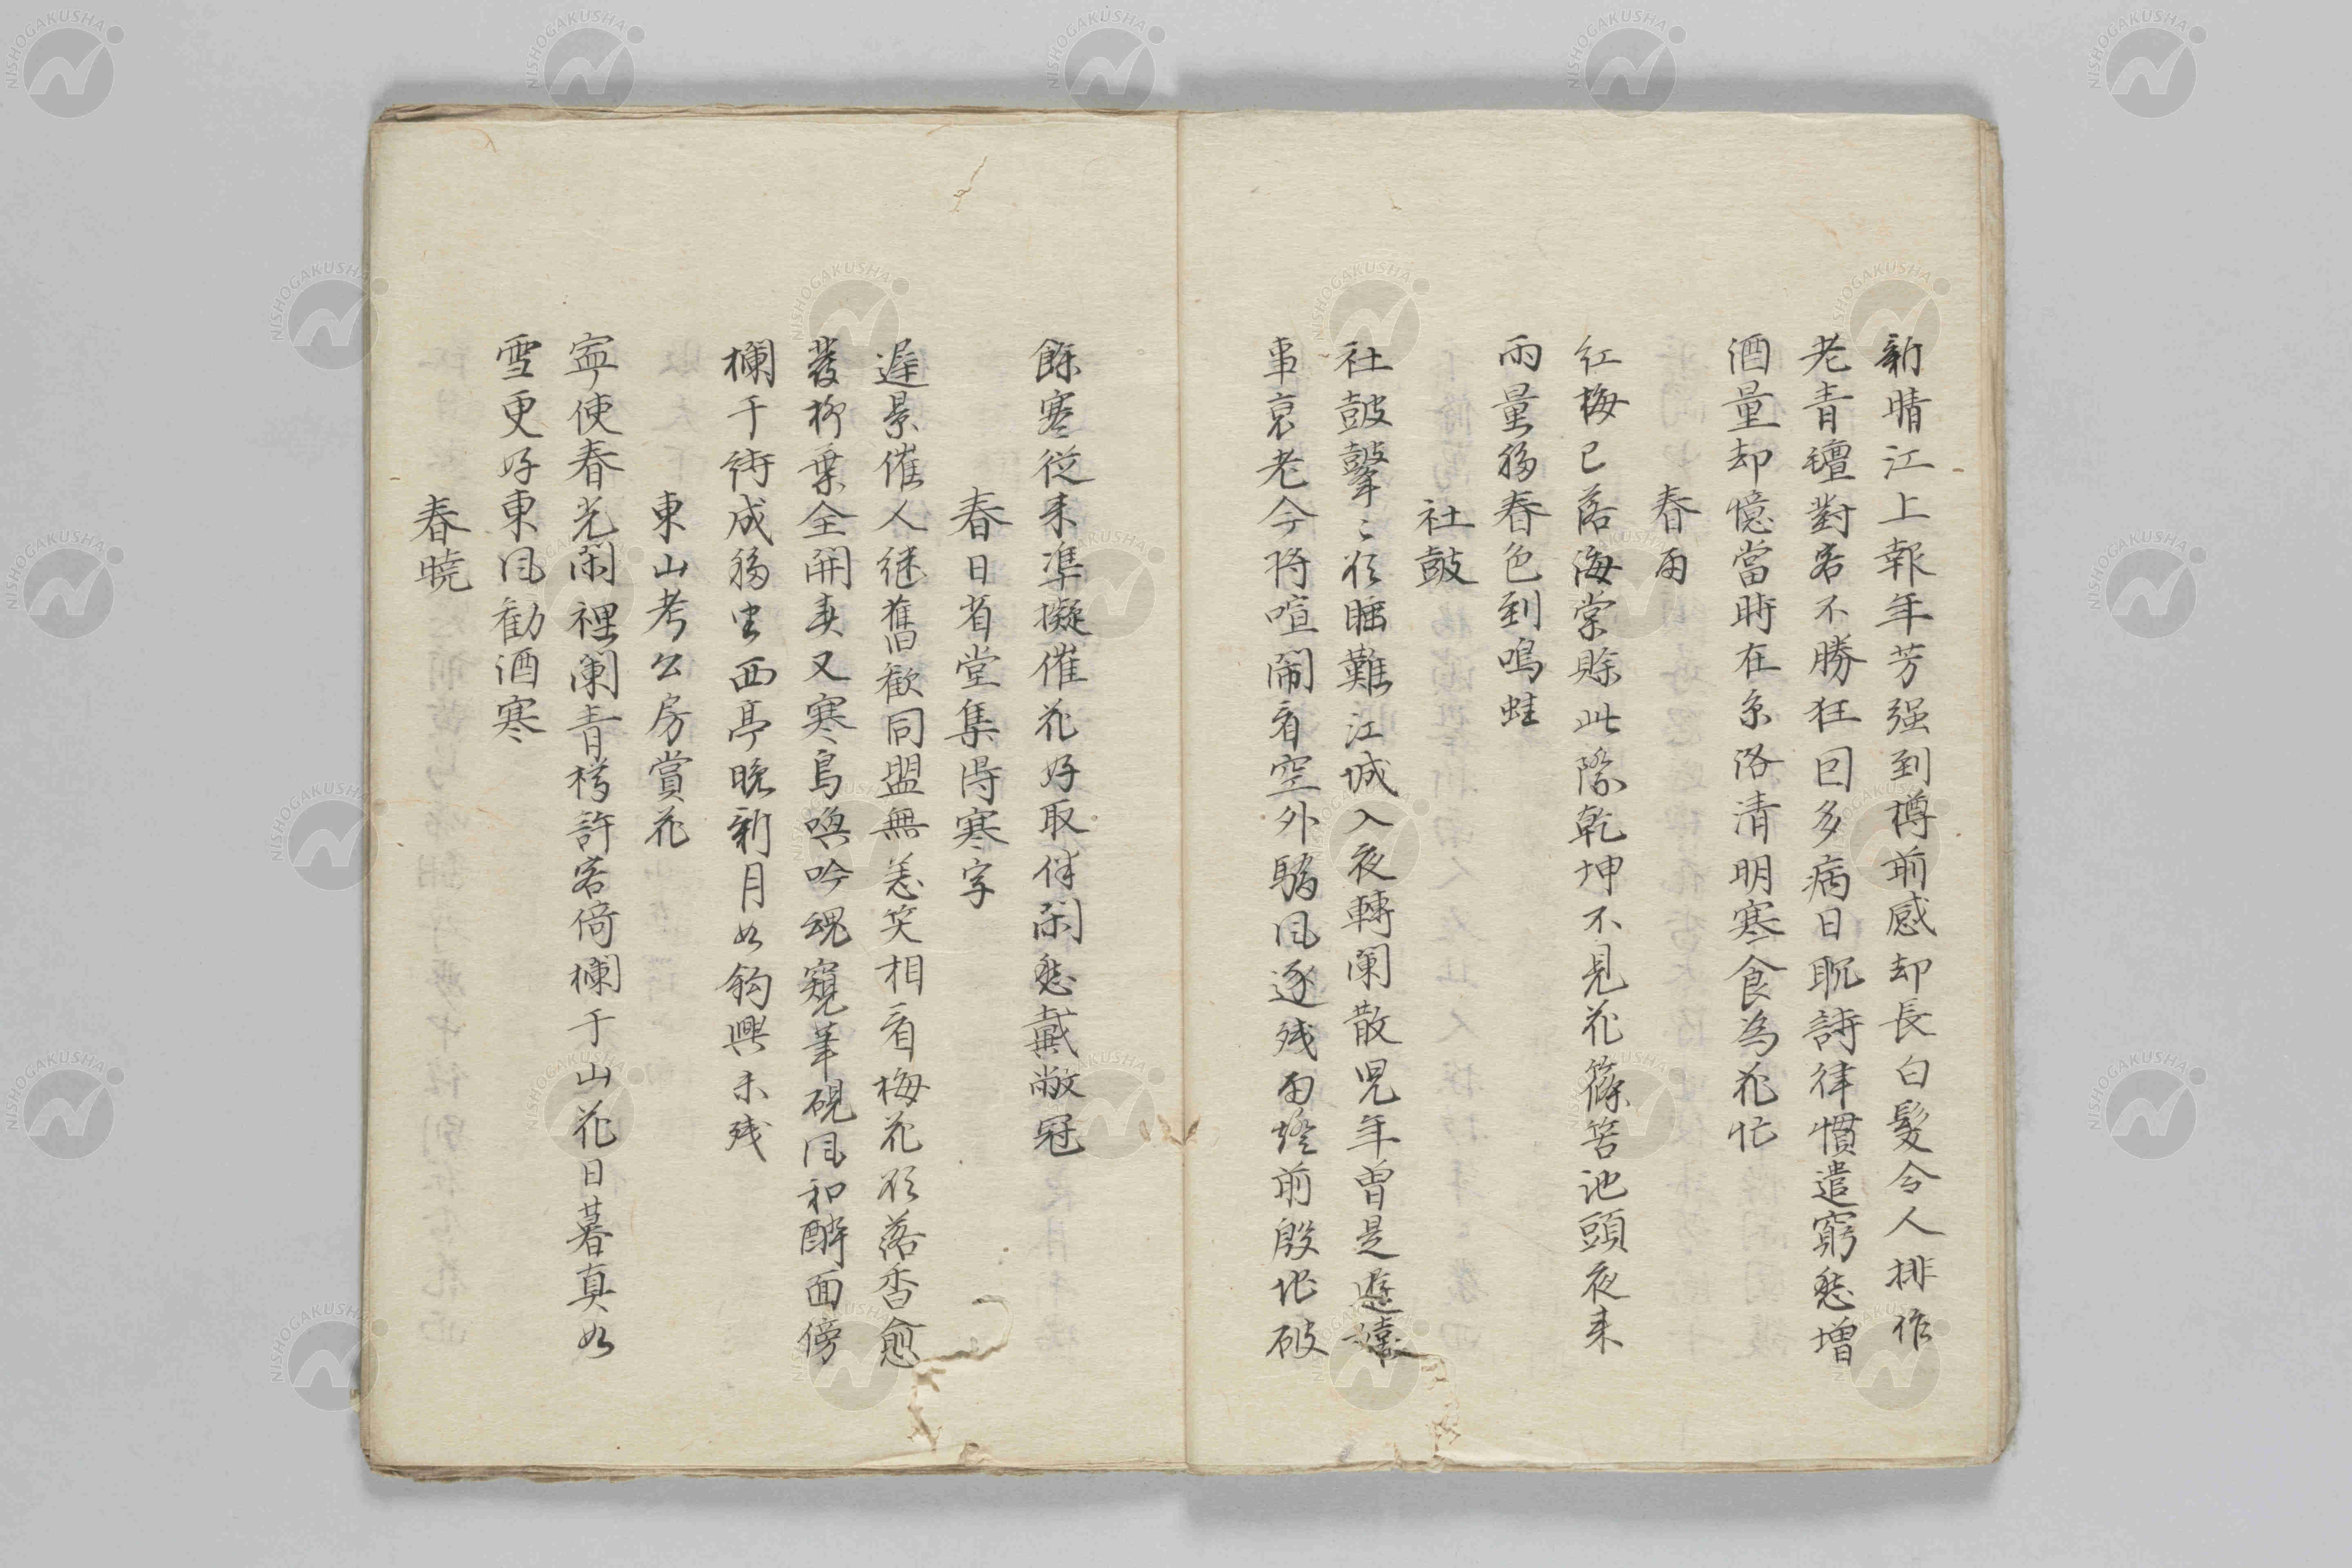 新晴江上報年芳强到樽前感却長白髮令人排作
老青氊對客不勝狂回多病日耽詩律慣遣窮愁増
酒量却憶當時在京洛清明寒食為花忙
春雨
紅梅已落海棠賖此際乾坤不見花篠笞池頭夜来
雨量務春色到鳴蛙
社鼓
社鼓鼕〻欲睡難江城入夜轉闌散児年曽是遊遠
事哀老今將喧鬧看空外驕風逐残雨燈前殷地破
餘寒従来準擬催花好取伴閑愁戴敝冠
春日省堂集得寒字
遅景催人継舊歓同盟無恙笑相看梅花欲落香愈
發柳葉全開爽又寒鳥喚吟魂窺筆硯風和酔面傍
欄干術成務虫西亭晚新月如鈎興未残
東山考公房賞花
寧使春光閑裡闌青樽許客倚欄于山花日暮真如
雪更好東風勧酒寒
春暁